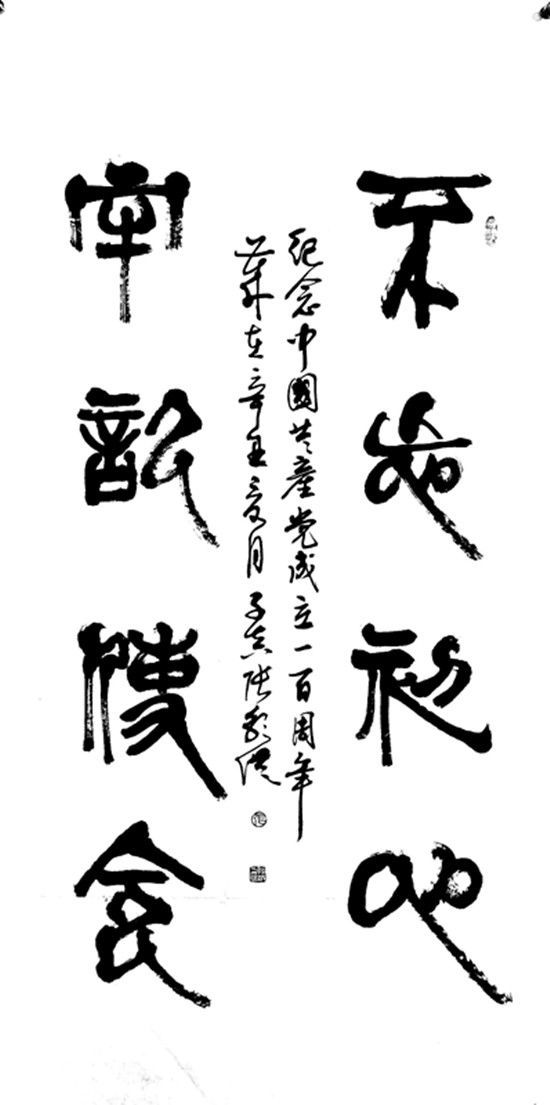 不忘初心
紀念中國共產党成立一百周年
歲在辛丑夏月子
牢記使命